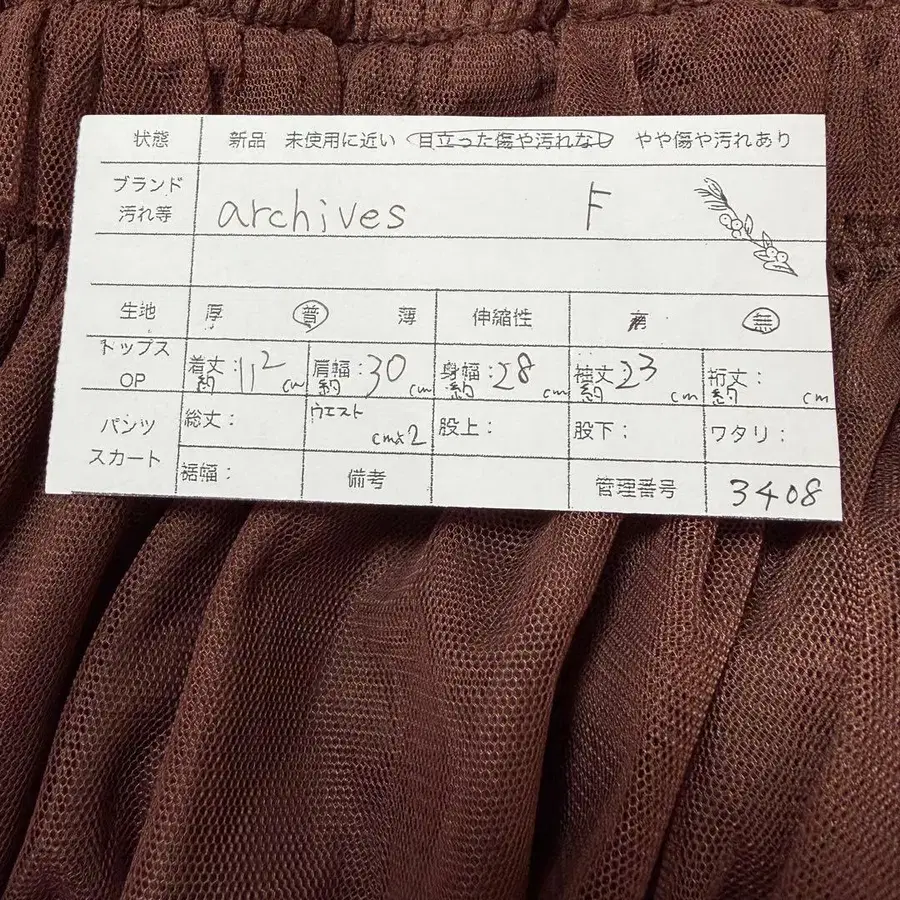 状態 新品 未使用に近い 目立った傷や汚れなし やや傷や汚れあり
ブランド
汚れ等 archives F
生地 厚 普 薄 伸縮性 有 無
トップス
OP 着丈:約112cm 肩幅:約30cm 身幅:約28cm 袖丈:約23cm 裄丈:約cm
パンツ
スカート 総丈: ウエスト cm×2 股上: 股下: ワタリ:
裾幅: 備考 管理番号 3408